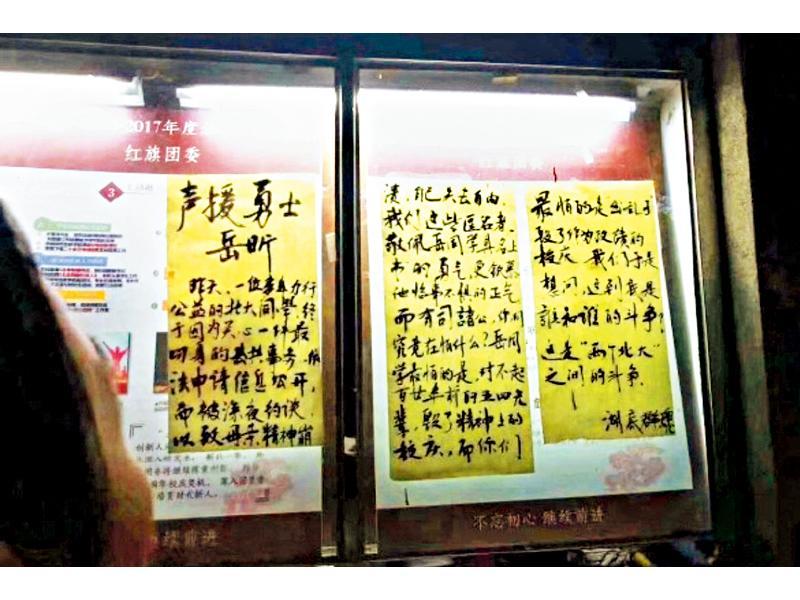 2017年度
红旗团委
3
声援勇士
岳昕
昨天、一位身体力行
公益的北大同学,终
于因为关心一件最
的公共事务,依
法申请信息公开,
而被深夜约谈,
以致母亲精神崩
溃,自己失去自由。
我们这些匿名者,
敬佩岳同学具名上
书的勇气,更钦慕
他临事不惧的正气
而有司諸公,你们
究竟在怕什么?岳同
学最怕的是,对不起
百廿年前的五四先
輩,毁了精神上的
校庆,而你们
最怕的是出乱子
毁了作为政绩的
校庆。我们于是
想问,这到底是
誰和谁的斗争?
这是“两个北大”
之间的斗争!
湖底群魂
创新人
培育时代新人。
继续前进
不忘初心 继续前进